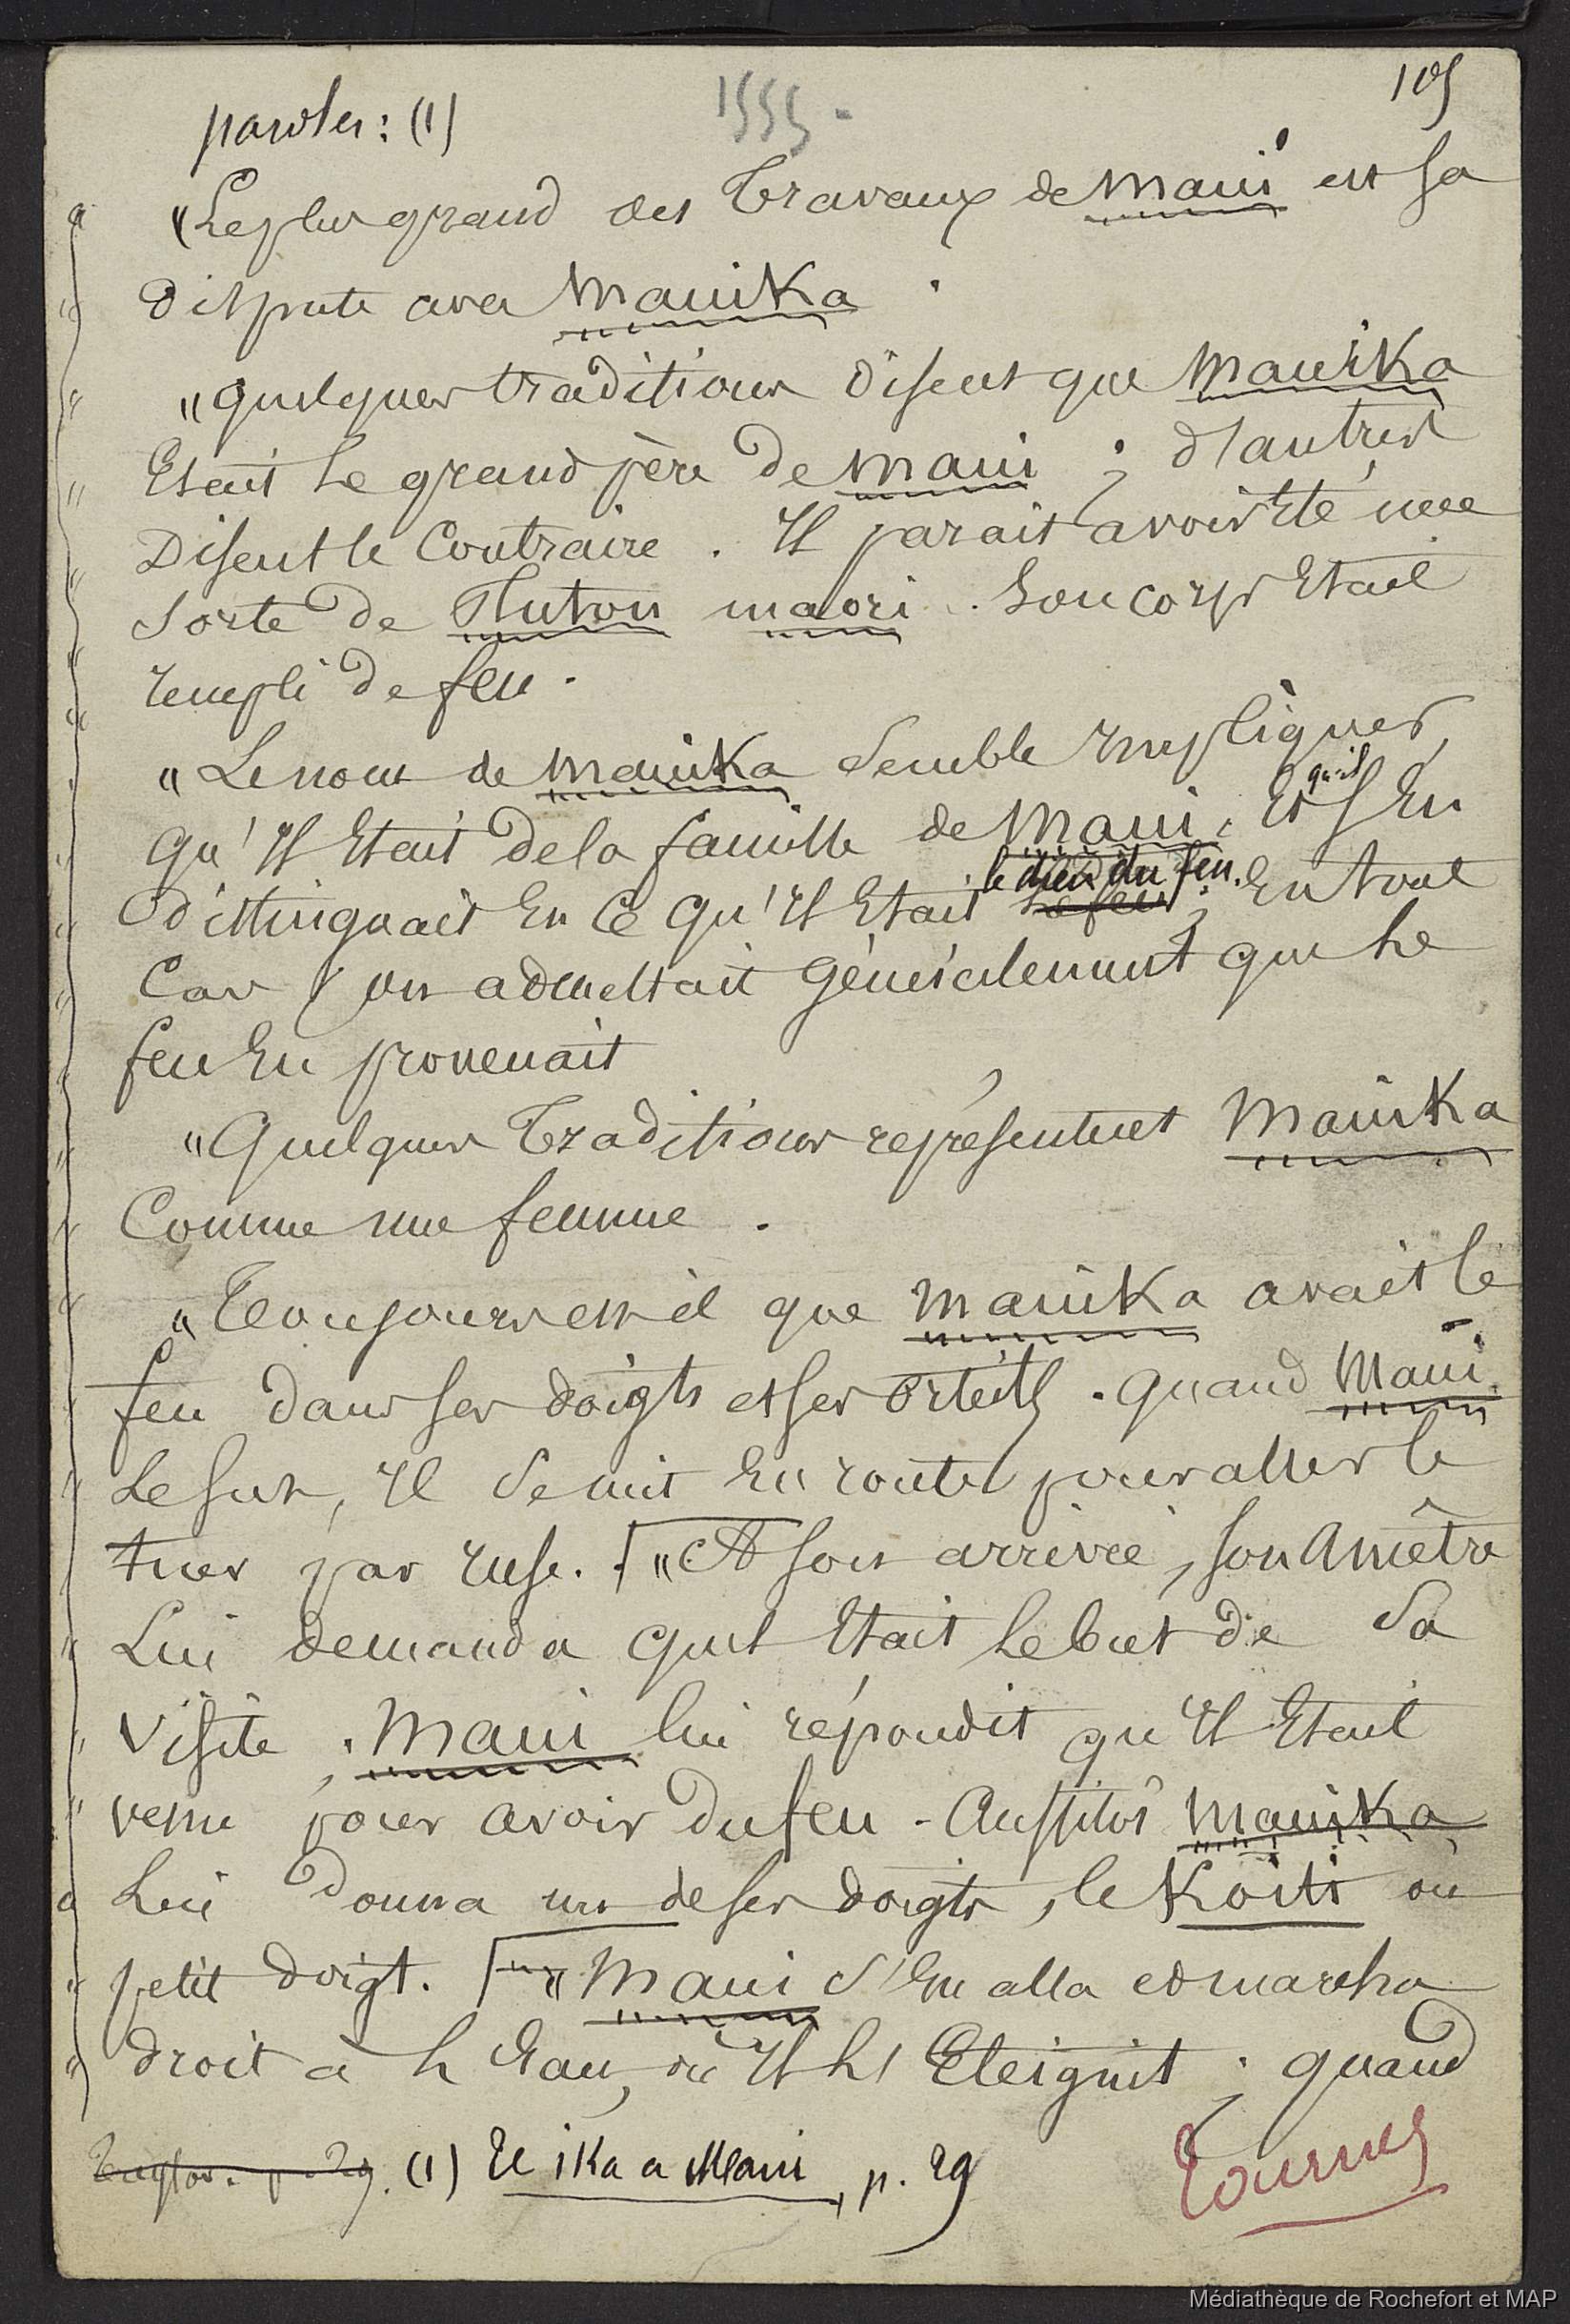 105
1555.
paroles : (1)
"Le plus grand des Travaux de Maui est sa
Dispute avec Mauika.
"quelques traditions disent que Mauika
Etait le grand père de Maui ; d'autres
Disent le Contraire. Il parait avoir Eté une
Sorte de Pluton maori. Son corps Etait
rempli de feu.
"Le nom de Mauika Semble Impliquer,
qu'Il Etait de la famille de Maui, Et qu'il S'En
distinguait En Ce qu'Il Etait le dieu du feu. le feu ; En tout
Cas, on admettait Généralement que le
feu En provenait
"Quelques Traditions représentent Mauika
Comme une femme.
"Toujours est-il que Mauika avait le
feu dans ses doigts et ses orteils. quand Maui
Le sut, Il Se mit En route pour aller le
tuer par ruse. "A son arrivée, son Ancêtre
Lui demanda quel Etait le but de Sa
visite. Maui lui répondit qu'Il Etait
venu pour avoir du feu - Aussitôt Mauika
Lui Donna un de ses doigts, le Koiti ou
petit doigt. "Maui S'En alla et marcha
droit à l'Eau, où Il l' Eteignit ; quand
Taylor. p. 29. (1) Te ika a Maui, p. 29
Tournez
Médiathèque de Rochefort et MAP